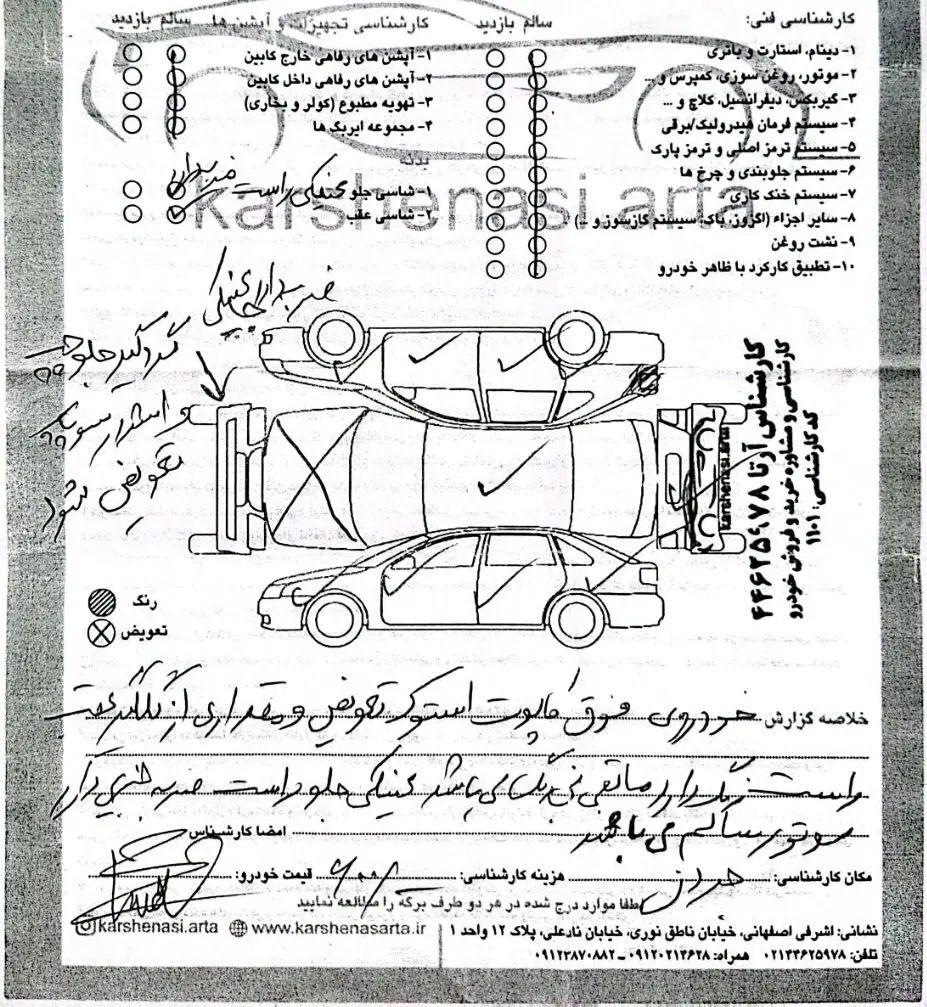 کارشناسی فنی: سالم بازدید
۱- دینام، استارت و باتری
۲- موتور، روغن سوزی، کمپرس و ...
۳- گیربکس، دیفرانسیل، کلاچ و ...
۴- سیستم فرمان هیدرولیک/برقی
۵- سیستم ترمز اصلی و ترمز پارک
۶- سیستم جلوبندی و چرخ ها
۷- سیستم خنک کاری
۸- سایر اجزاء (اگزوز، باک، سیستم گازسوز و ...)
۹- نشت روغن
۱۰- تطبیق کارکرد با ظاهر خودرو
کارشناسی تجهیزات و آپشن ها سالم بازدید
۱- آپشن های رفاهی خارج کابین
۲- آپشن های رفاهی داخل کابین
۳- تهویه مطبوع (کولر و بخاری)
۴- مجموعه ایربگ ها
بدنه
۱- شاسی جلو عینکی راست ضربه دارد
۲- شاسی عقب
karshenasi.arta
ضربه دارد عینکی
گردگیر جلو چپ
تعویض شود
کارشناس آرتا ۴۴۶۲۵۹۷۸
کارشناسی و مشاوره خرید و فروش خودرو
کد کارشناسی: ۱۱۰۱
karshenasi.arta
رنگ
تعویض
خلاصه گزارش خودروی فوق کاپوت استوک تعویض و مقداری از گلگیر عقب
راست رنگ دارد مابقی بی رنگ می باشد عینکی جلو راست ضربه
موتور سالم می باشد
امضا کارشناس
مکان کارشناسی: هزینه کارشناسی: قیمت خودرو:
لطفا موارد درج شده در هر دو طرف برگه را مطالعه نمایید
نشانی: اشرفی اصفهانی، خیابان ناطق نوری، خیابان نادعلی، پلاک ۱۲ واحد ۱
تلفن: ۰۲۱۴۴۶۲۵۹۷۸ همراه: ۰۹۱۲۰۲۱۴۶۲۸ - ۰۹۱۲۳۸۷۰۸۸۲
karshenasi.arta www.karshenasarta.ir